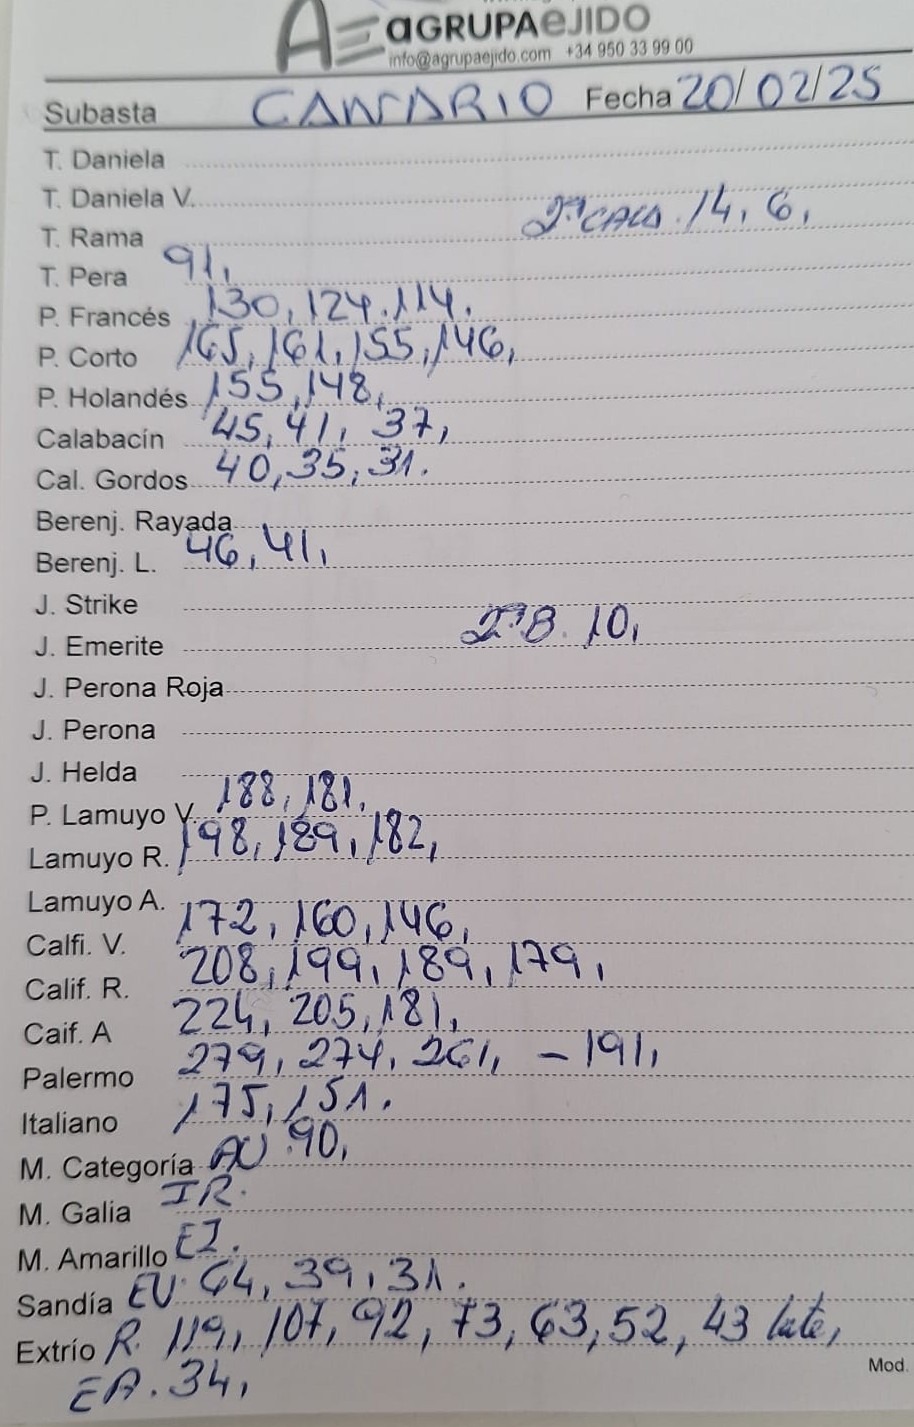 AE aGRUPAeJIDO
info@agrupaejido.com +34 950 33 99 00
Subasta CANARIO Fecha 20/02/25
T. Daniela
T. Daniela V.
T. Rama 2ª CALA. 14, 6,
T. Pera 91,
P. Francés 130, 124. 114.
P. Corto 165, 161, 155, 146,
P. Holandés 155, 148,
Calabacín 45, 41, 37,
Cal. Gordos 40, 35, 31.
Berenj. Rayada
Berenj. L. 46, 41,
J. Strike
J. Emerite 2ª B. 10,
J. Perona Roja
J. Perona
J. Helda
P. Lamuyo V. 188, 181,
Lamuyo R. 198, 189, 182,
Lamuyo A.
Calfi. V. 172, 160, 146,
Calif. R. 208, 199, 189, 179,
Caif. A 224, 205, 181,
Palermo 279, 274, 261, - 191,
Italiano 175, 151.
M. Categoría AU 90,
M. Galia IR.
M. Amarillo EI.
Sandía EU. 64, 39, 31.
Extrío R. 119, 107, 92, 73, 63, 52, 43 lute,
EA. 34,
Mod.